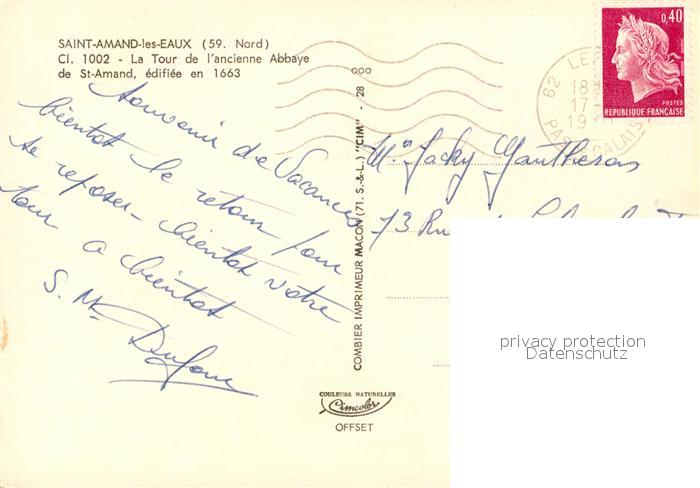 SAINT-AMAND-les-EAUX (59. Nord)
Cl. 1002 - La Tour de l'ancienne Abbaye
de St-Amand, édifiée en 1663
Souvenir de Vacances
bientot le retour pour
se reposer - bientot votre
tour a bientot
S. Mr
Dufour
COMBIER IMPRIMEUR MACON (71. S.-&-L.) "CIM" - 28
COULEURS NATURELLES
Cimcolor
OFFSET
0,40
POSTES
REPUBLIQUE FRANÇAISE
62 LE
18
17
19
PAS CALAIS
Jacky Gautheron
73 Rue
privacy protection
Datenschutz